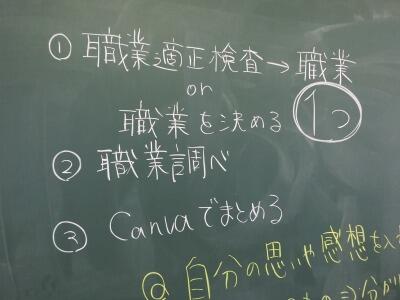 ① 職業適正検査→職業
or
職業を決める 1つ
② 職業調べ
③ Canvaでまとめる
自分の思いや感想を入